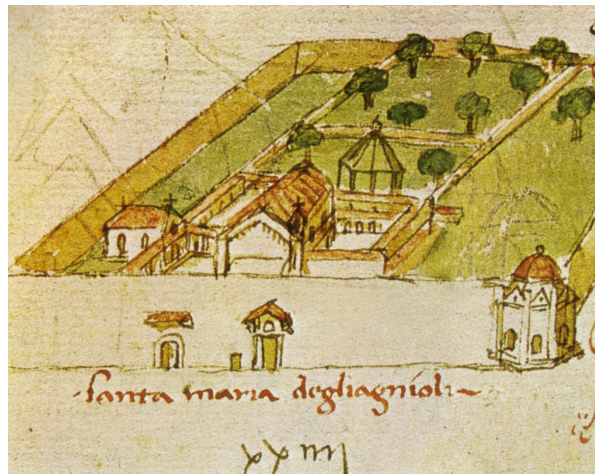 santa maria degliagnioli
xx iiij